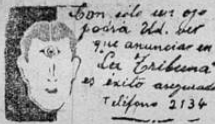 Con sólo un ojo
podria Ud. ver
que anunciar en
"La Tribuna"
es éxito asegurado
Teléfono 2134